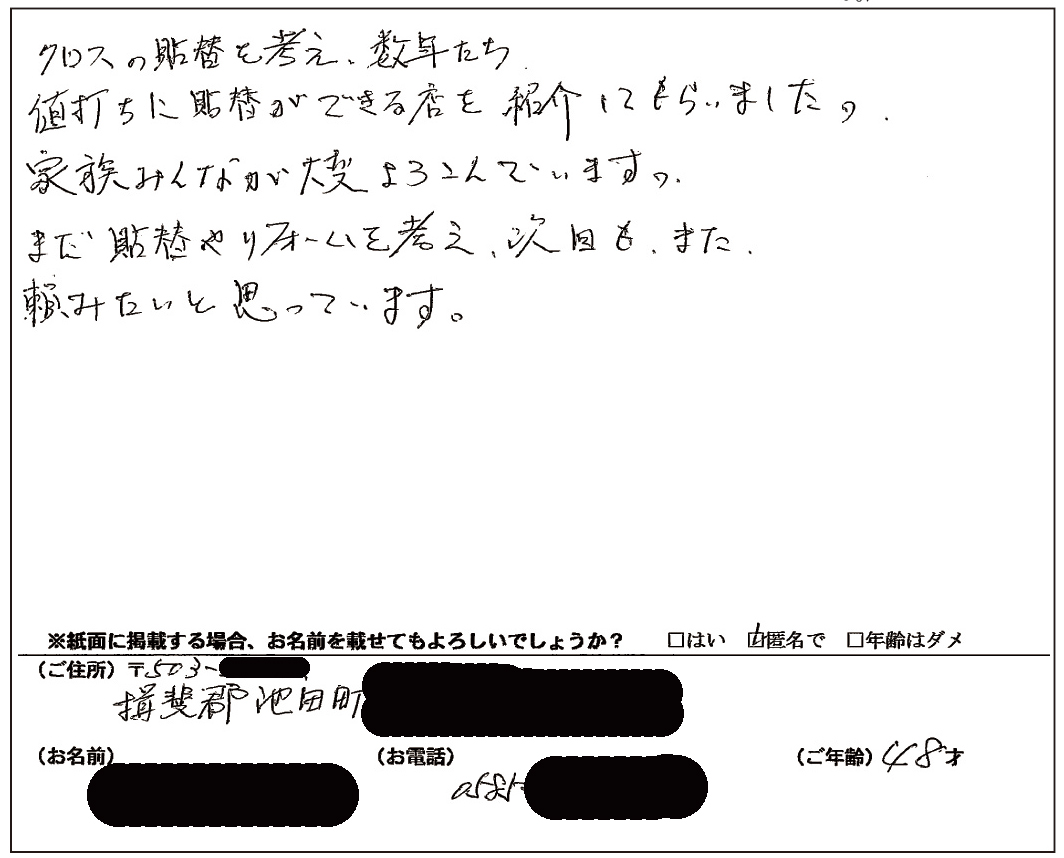 クロスの貼替を考え、数年たち
値打ちに貼替ができる店を紹介してもらいました。
家族みんなが大変よろこんでいます。
まだ貼替やリフォームを考え、次回も、また、
頼みたいと思っています。
※紙面に掲載する場合、お名前を載せてもよろしいでしょうか？ □はい □匿名で □年齢はダメ
（ご住所）〒503-
揖斐郡池田町
（お名前） （お電話） （ご年齢）48才
0585-